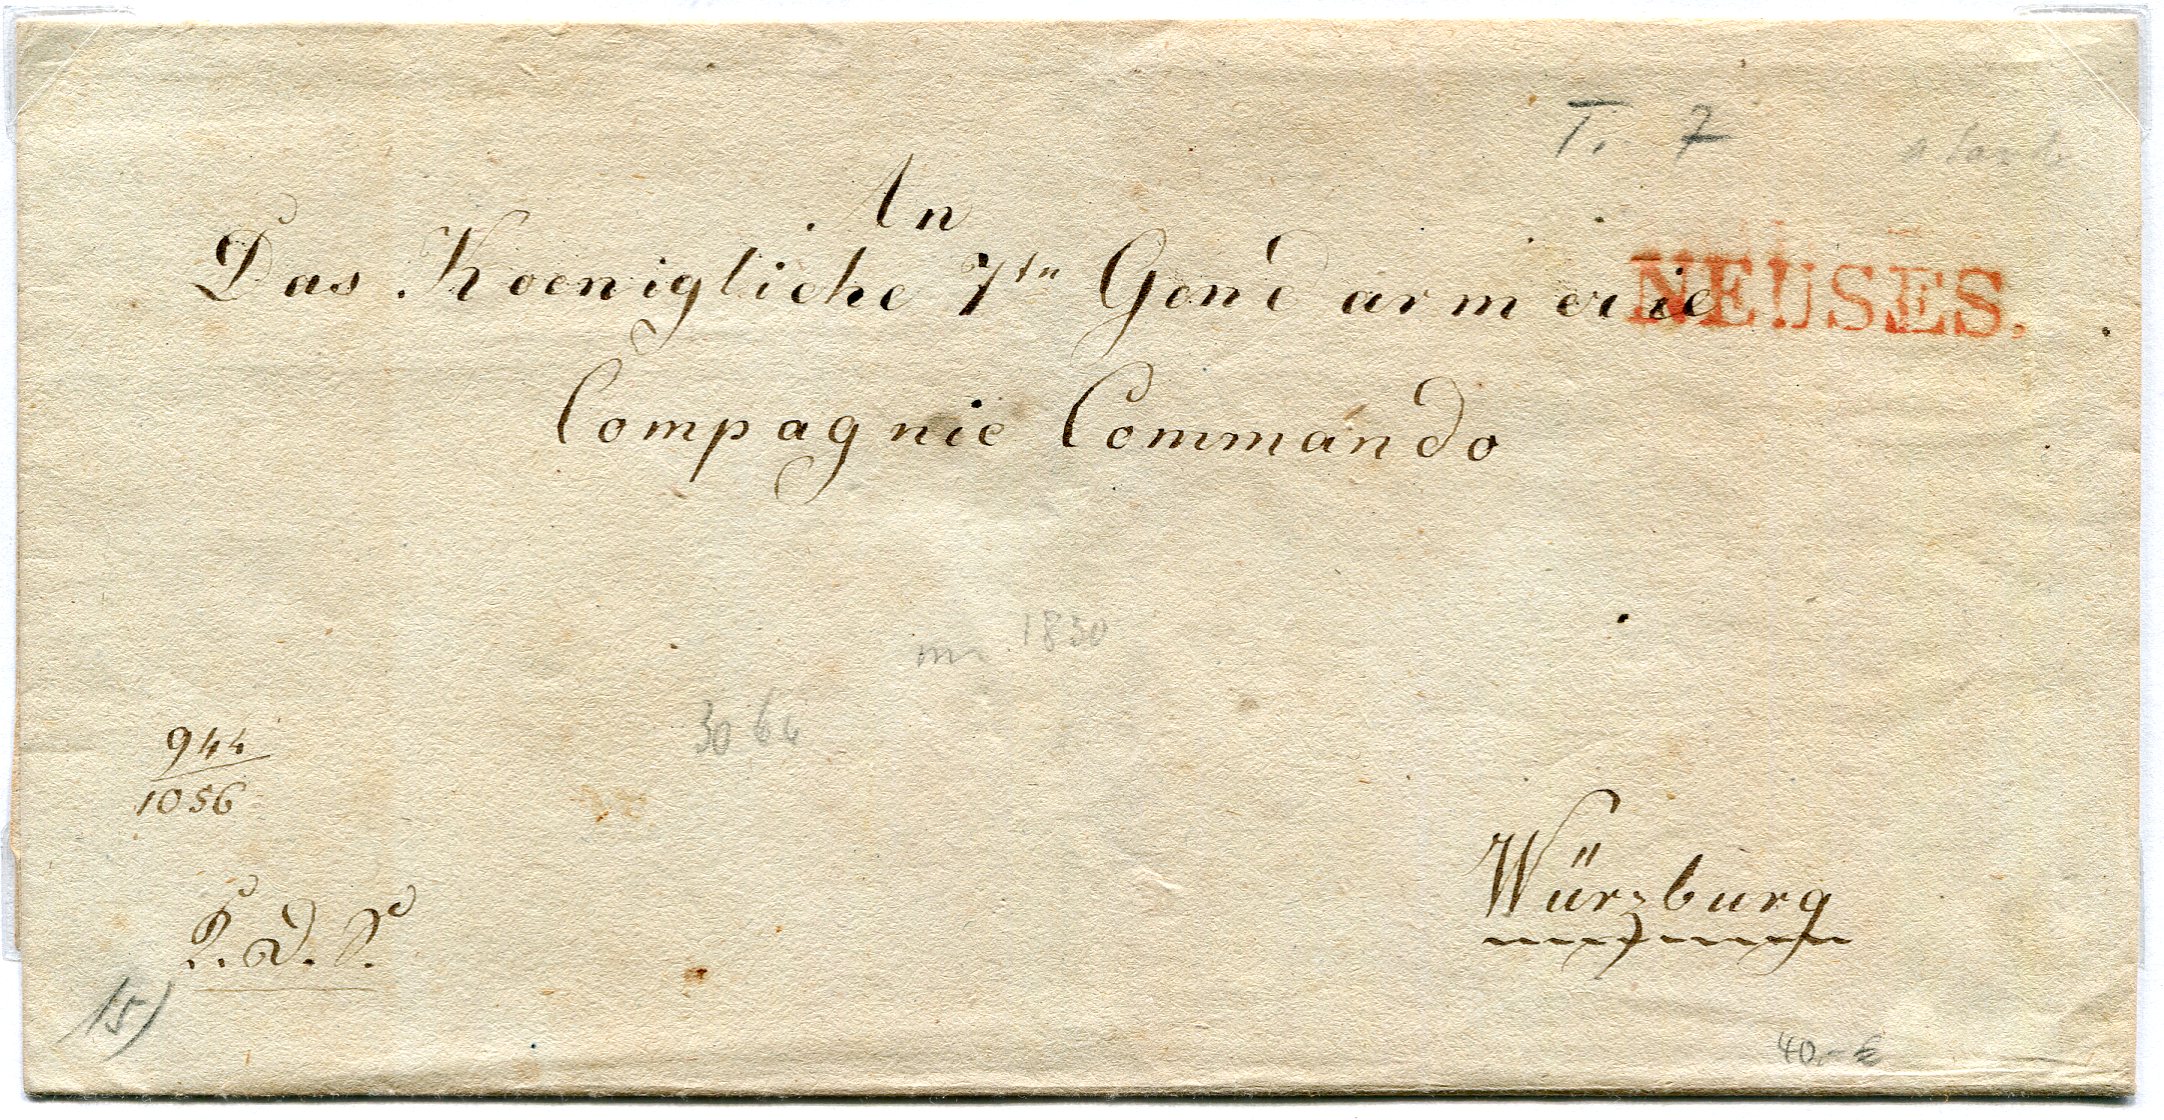 T. 7
An
Das Koenigliche 7tn Gend'armerie
NEUSES.
Compagnie Commando
1830
944
1056
Würzburg
15)
40,- €